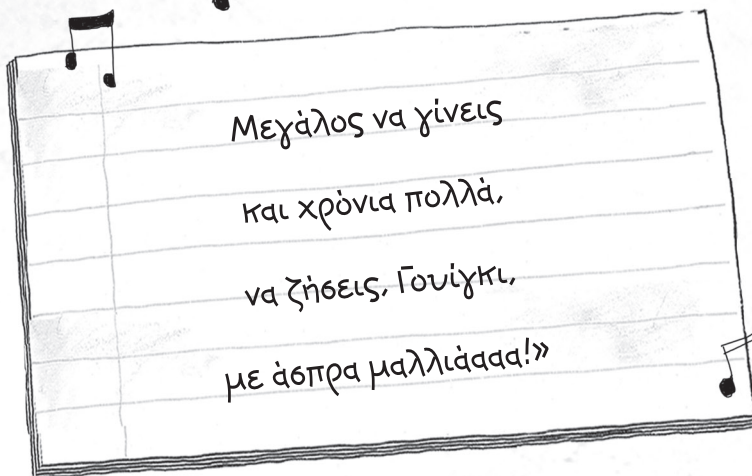 Μεγάλος να γίνεις
και χρόνια πολλά,
να ζήσεις, Γουίγκι,
με άσπρα μαλλιάααα!»